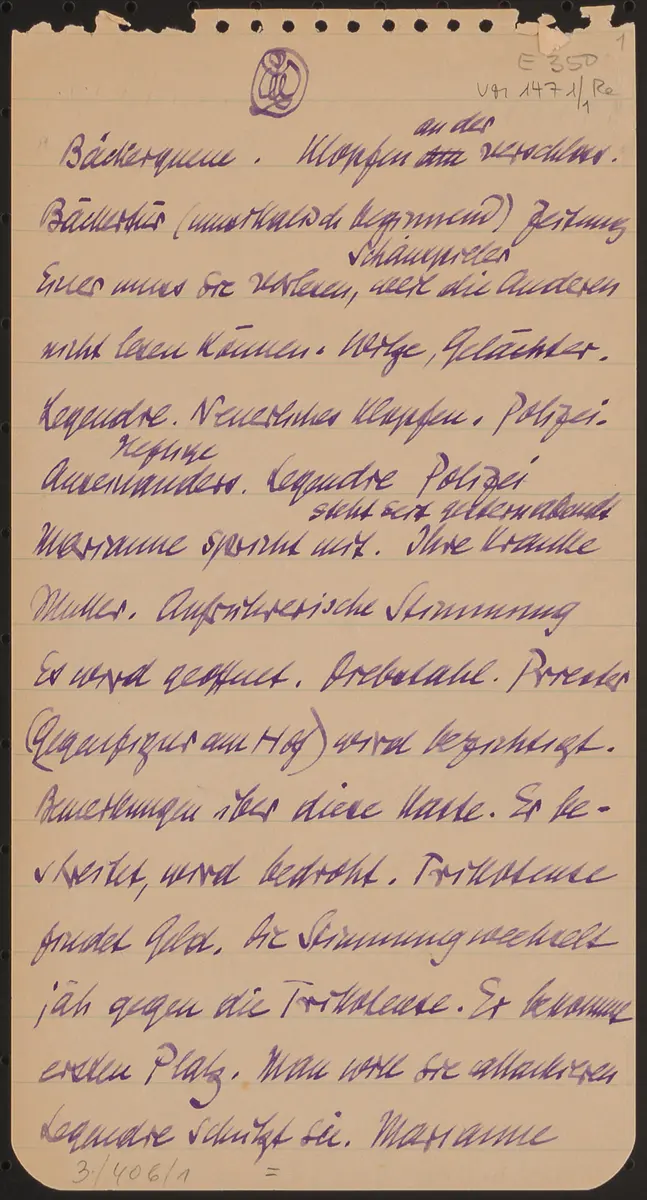 1
E 350
Van 1471/1 Re
an der
Bäckerqueue. Klopfen am verschloss.
Bäckertür (musikalisch beginnend) Zeitung
Schauspieler
Einer muss sie vorlesen, weil die Anderen
nicht lesen können. Witze, Gelächter.
Legendre. Neuerliches Klopfen. Polizei.
Heftige
Auseinanders. Legendre Polizei
steht seit gestern abend
Marianne spricht mit. Ihre kranke
Mutter. Aufrührerische Stimmung
Es wird geöffnet. Diebstahl. Priester
(Gegenfigur am Hof) wird bezichtigt.
Bemerkungen über diese Kaste. Er be-
streitet, wird bedroht. Trikoteuse
findet Geld. Die Stimmung wechselt
jäh gegen die Trikoteuse. Er bekommt
ersten Platz. Man will sie attackieren
Legendre schützt sie. Marianne
3./406/1 =